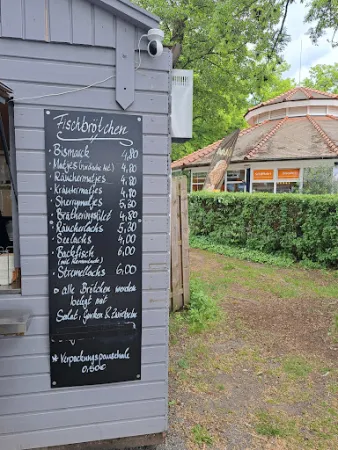 Fischbrötchen
Bismarck 4,80
Matjes (nordische Art) 4,80
Räuchermatjes 4,80
Kräutermatjes 4,80
Sherrymatjes 5,30
Bratheringsfilet 4,80
Räucherlachs 5,30
Seelachs 4,00
Backfisch 6,00
(mit Remoulade)
Stremellachs 6,00
* alle Brötchen werden
belegt mit
Salat, Gurken & Zwiebeln
* Verpackungspauschale
0,50€